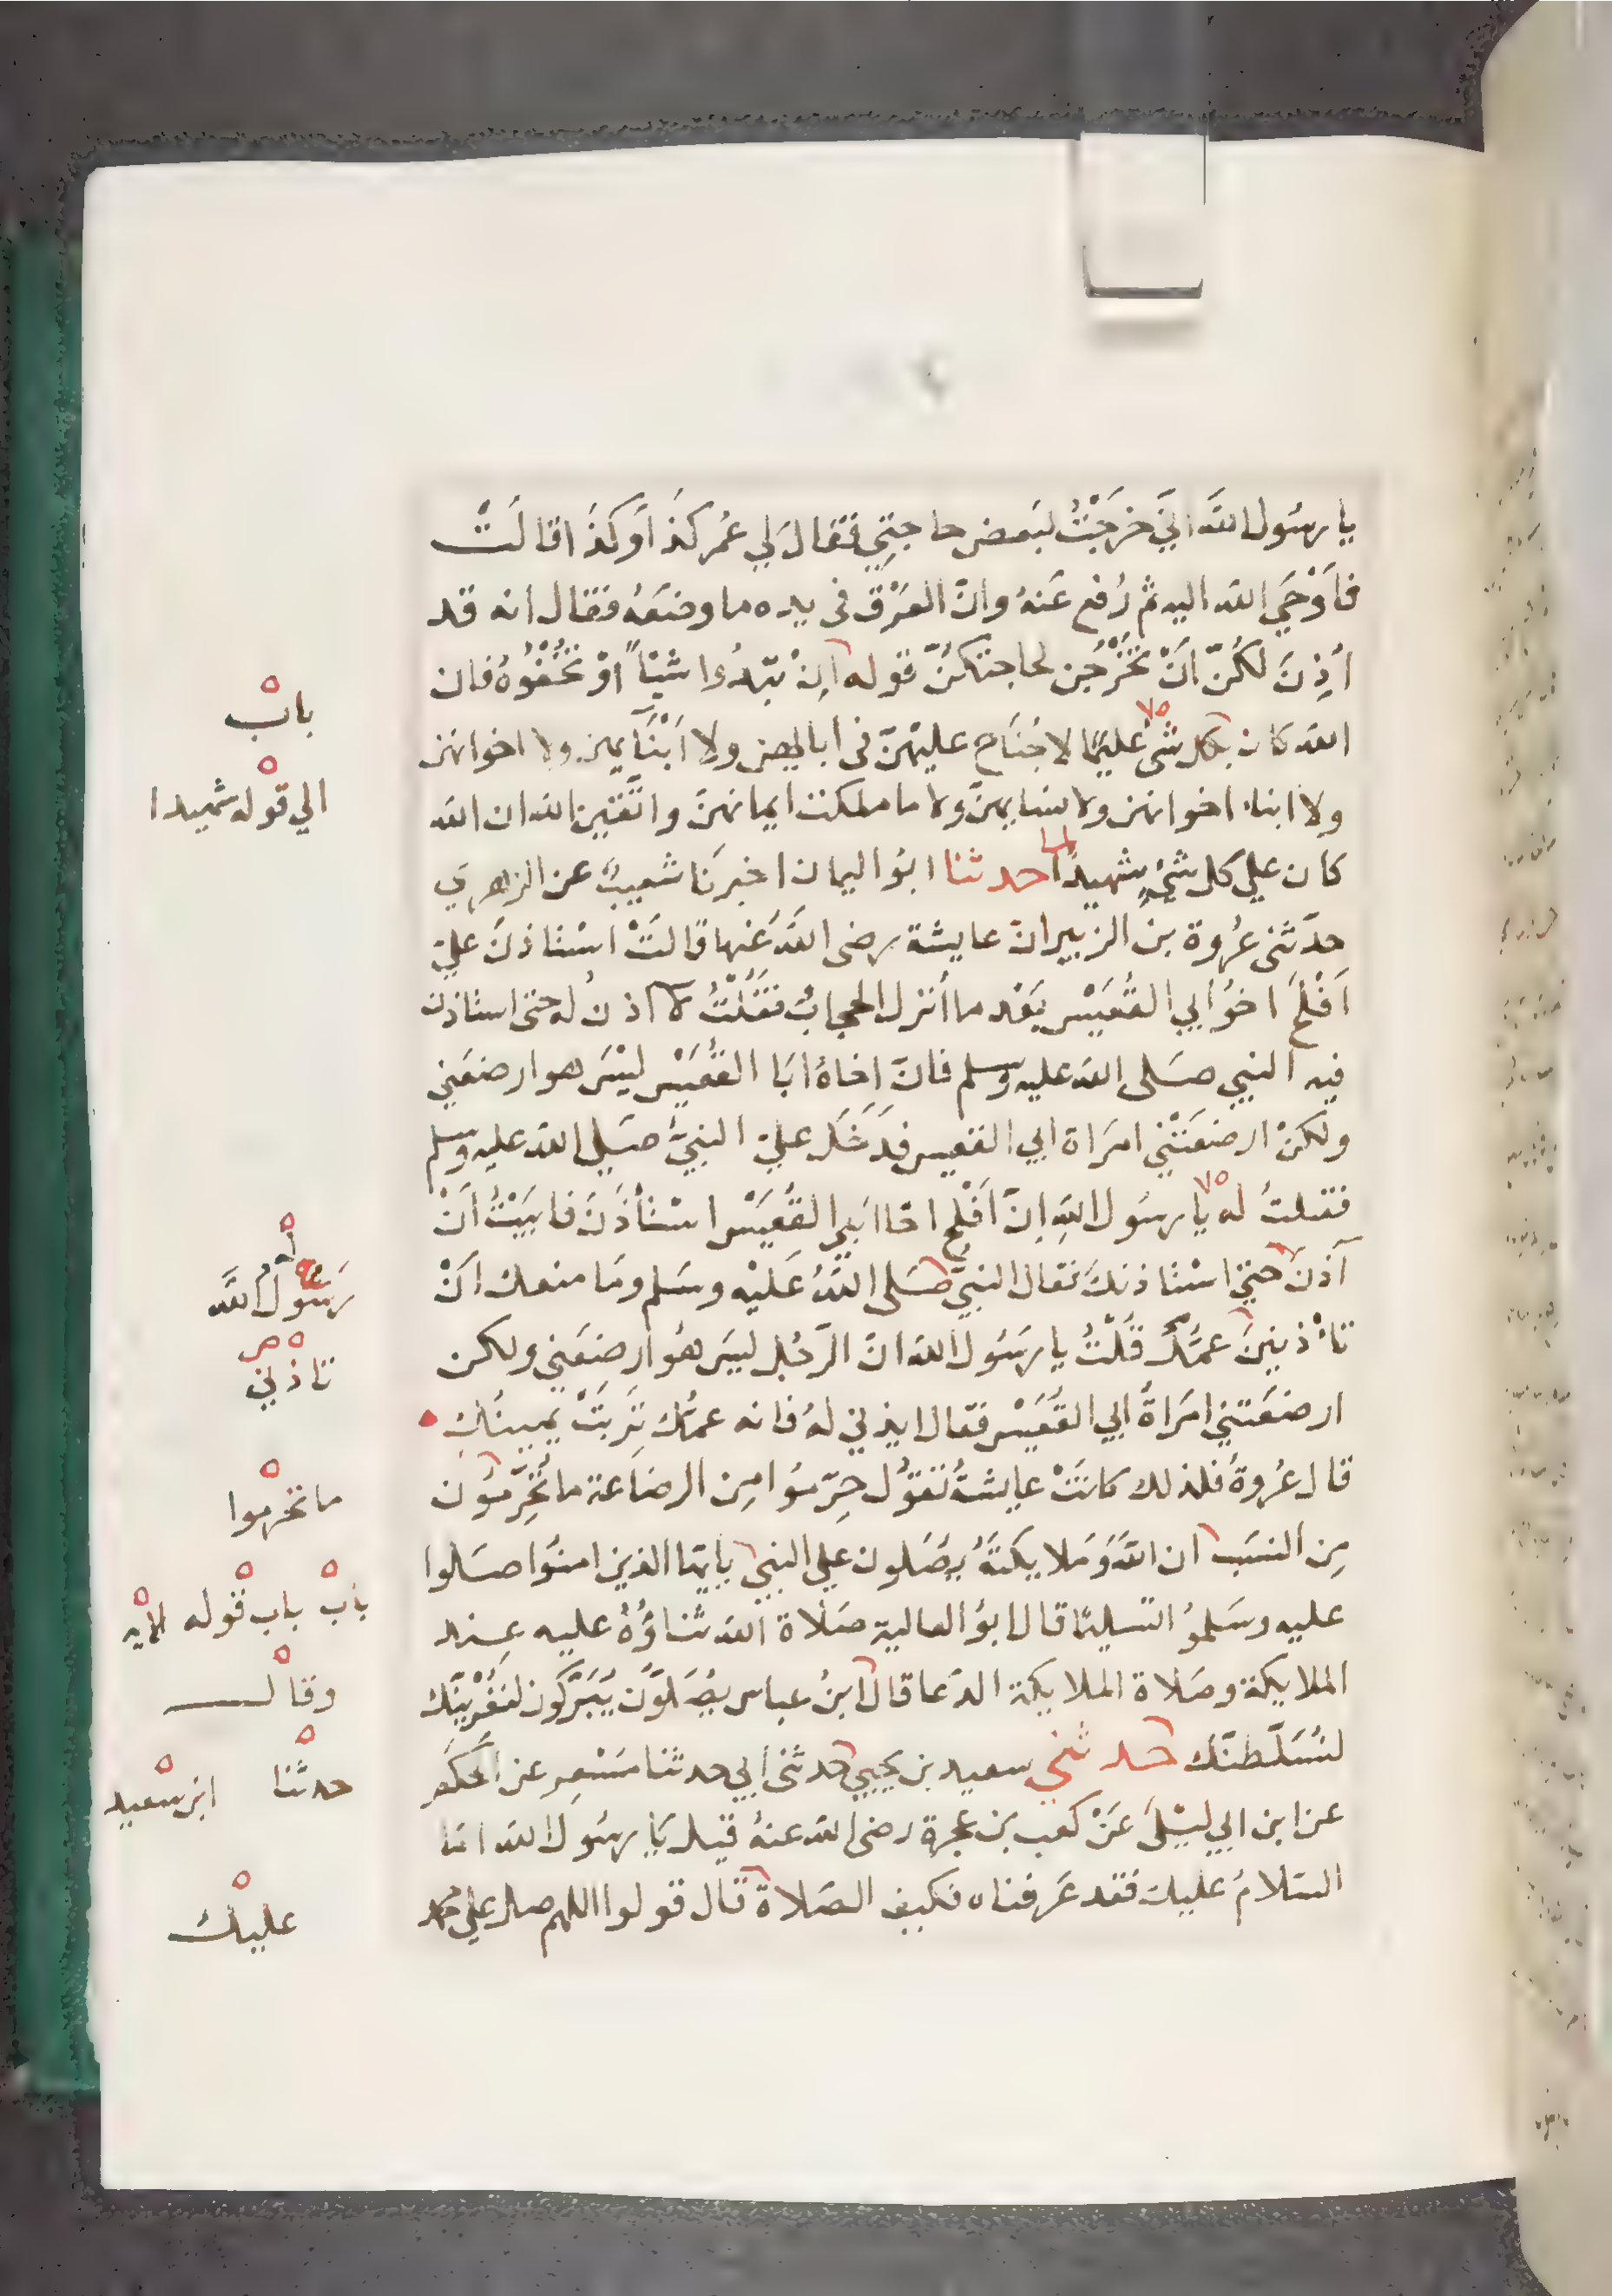 يا رسُول اللَّه اِنِّي خرَجْتُ لبَعض حاجتِي فقال لِي عُمر كذَا وكذَا قالَتْ
فأَوْحَي الله اليه ثم رُفع عَنهُ وانّ العَرْق في يده ما وضعَهُ فقال انه قد
أُذِنَ لكُنّ انْ تَخْرُجْن لحاجتكنّ قوله اِنْ تبْدُوا شيْاً اوْ تُخْفُوْهُ فان
الله كان بكل شئ عليمًا لا جُنَاح عليْهنّ في ابايهن ولا ابْنَآيهن ولا اخوانهن
ولا ابناء اخوانهن ولا نسايهنّ ولا ما ملكت ايمانهنّ واتَّقين الله ان الله
كان علي كل شئٍ شهيدًا حدثنا ابوُ اليمان اخبرنَا شعيبٌ عن الزهري
حدّثني عُروة بن الزبير انّ عايشة رضي اللَّه عَنها قالتْ استاذنَ عليّ
اَفْلح اخوُ ابي القُعَيْس بَعْد ما أُنزل الحجابُ فقُلْتُ لا اذنُ له حتى استاذن
فيه النبي صَلى الله عليه وسلم فانّ اخاهُ ابَا القُعَيْس ليْسَ هو ارضعَني
ولكنْ ارضعَتْني امرَاة ابي القعيس فدَخَل عليّ النبيُّ صَلي الله عليه وسلم
فقلتُ له يا رسُول اللهِ اِنّ اَفْلح اخا ابي القُعَيْس استأذَنَ فابَيْتُ أنْ
آذَنَ حتي استاذنكَ فقال النبيُّ صَلى اللَّهُ عَليْه وسَلم ومَا منعك انْ
تأْذنينَ عمُّكِ قُلْتُ يا رسُول الله انّ الرّجُل ليسَ هُو ارضعَني ولكن
ارضعَتني امرَاةُ ابي القُعَيْس فقال ايذني لهُ فانه عمُّك تَرِبَتْ يمينُكِ
قال عُروةُ فلذلك كانتْ عايشةُ تقوُل حرّموُا مِن الرضاعة ما تُحَرّموُن
مِن النسَب ان اللَّه وَملايكتهُ يصَلون علي النبي يايها الذين امنوُا صَلوا
عليه وسَلموُا تسليمًا قال ابوُ العالية صَلاة الله ثناؤهُ عليه عند
الملايكة وصَلاة الملايكة الدّعا قال ابنُ عباس يصَلوّن يُبَرّكون لنغْرينّك
لنُسَلّطنّك حدثني سعيد بن يحيي حدثني أبي حدثنا مسْعر عن الحَكَم
عن ابن ابي ليْلَى عَنْ كعب بن عجرة رضي الله عنهُ قيل يَا رسُول الله امّا
السّلامُ عليك فقد عَرفناه فكيف الصّلاةُ قال قولوا اللهم صل علي محمد
باب
الي قوله شهيدا
رَسُولُ اللَّه
تاذني
ما تحرموا
باب باب قوله الاية
وقال
حدثنا ابن سعيد
عليك